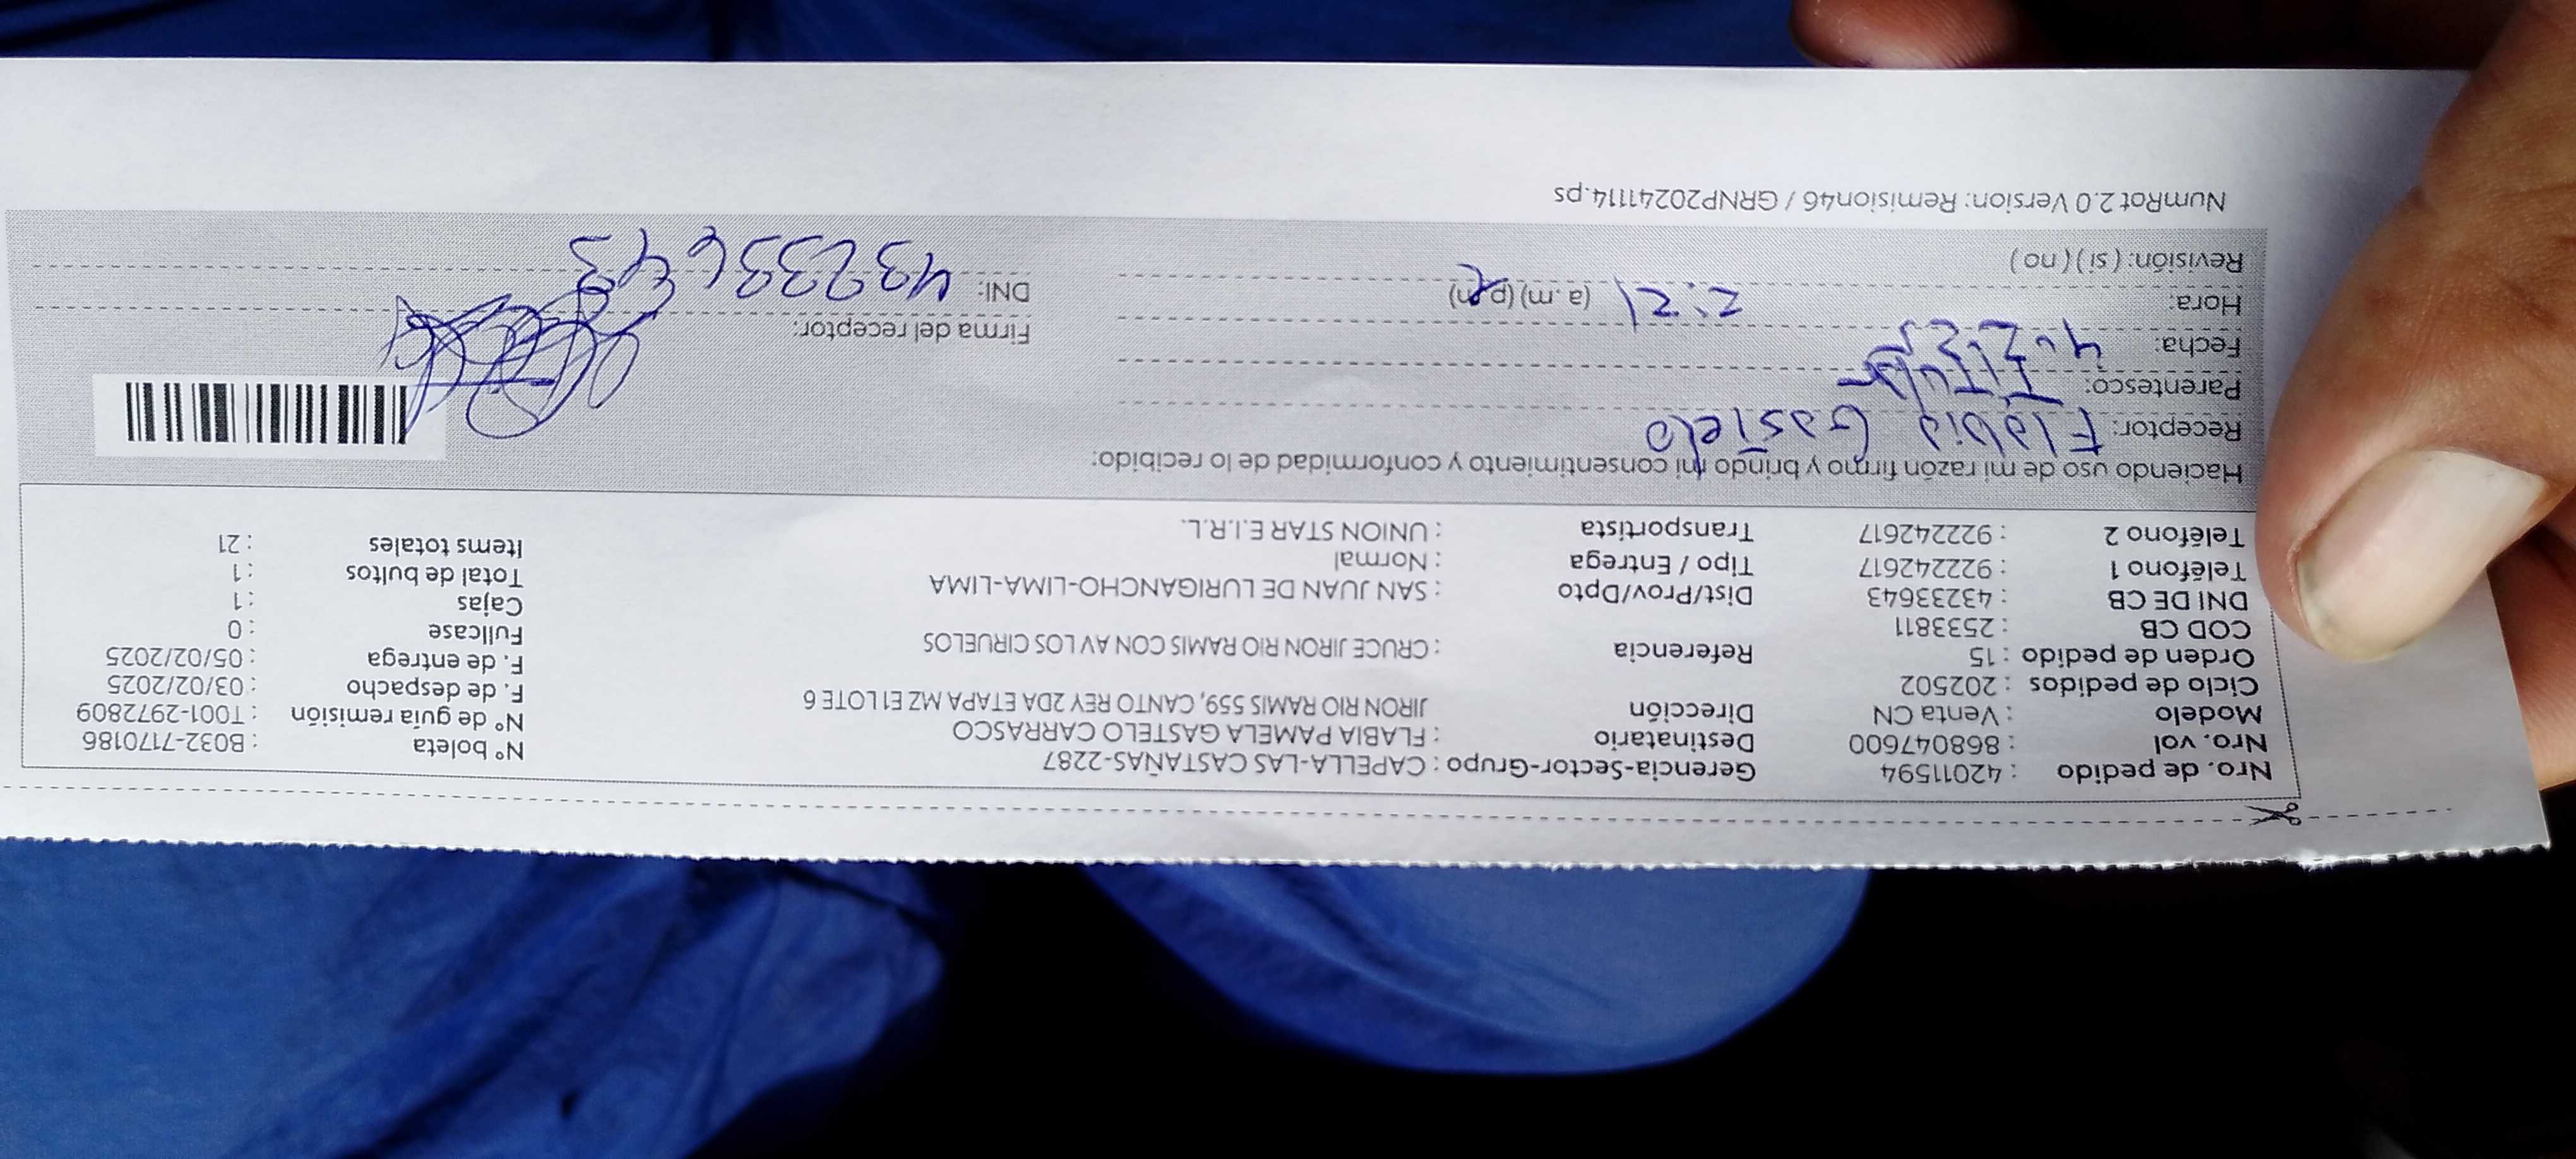 Nro. de pedido : 42011594 Gerencia-Sector-Grupo : CAPELLA-LAS CASTAÑAS-2287 N° boleta : B032-7170186
Nro. vol : 868047600 Destinatario : FLABIA PAMELA GASTELO CARRASCO N° de guía remisión : T001-2972809
Modelo : Venta CN Dirección JIRON RIO RAMIS 559, CANTO REY 2DA ETAPA MZ E1 LOTE 6 F. de despacho : 03/02/2025
Ciclo de pedidos : 202502 F. de entrega : 05/02/2025
Orden de pedido : 15 Referencia : CRUCE JIRON RIO RAMIS CON AV LOS CIRUELOS Fullcase : 0
COD CB : 2533811 Cajas : 1
DNI DE CB : 43233643 Dist/Prov/Dpto : SAN JUAN DE LURIGANCHO-LIMA-LIMA Total de bultos : 1
Teléfono 1 : 922242617 Tipo / Entrega : Normal Items totales : 21
Teléfono 2 : 922242617 Transportista : UNION STAR E.I.R.L.
Haciendo uso de mi razón firmo y brindo mi consentimiento y conformidad de lo recibido:
Receptor: Flabia Gastelo
Parentesco: Titular
Fecha:
Hora: 2:21 (a.m) (p.m) Firma del receptor:
Revisión: (si) (no) DNI: 43233643
NumRot 2.0 Version: Remision46 / GRNP20241114.ps